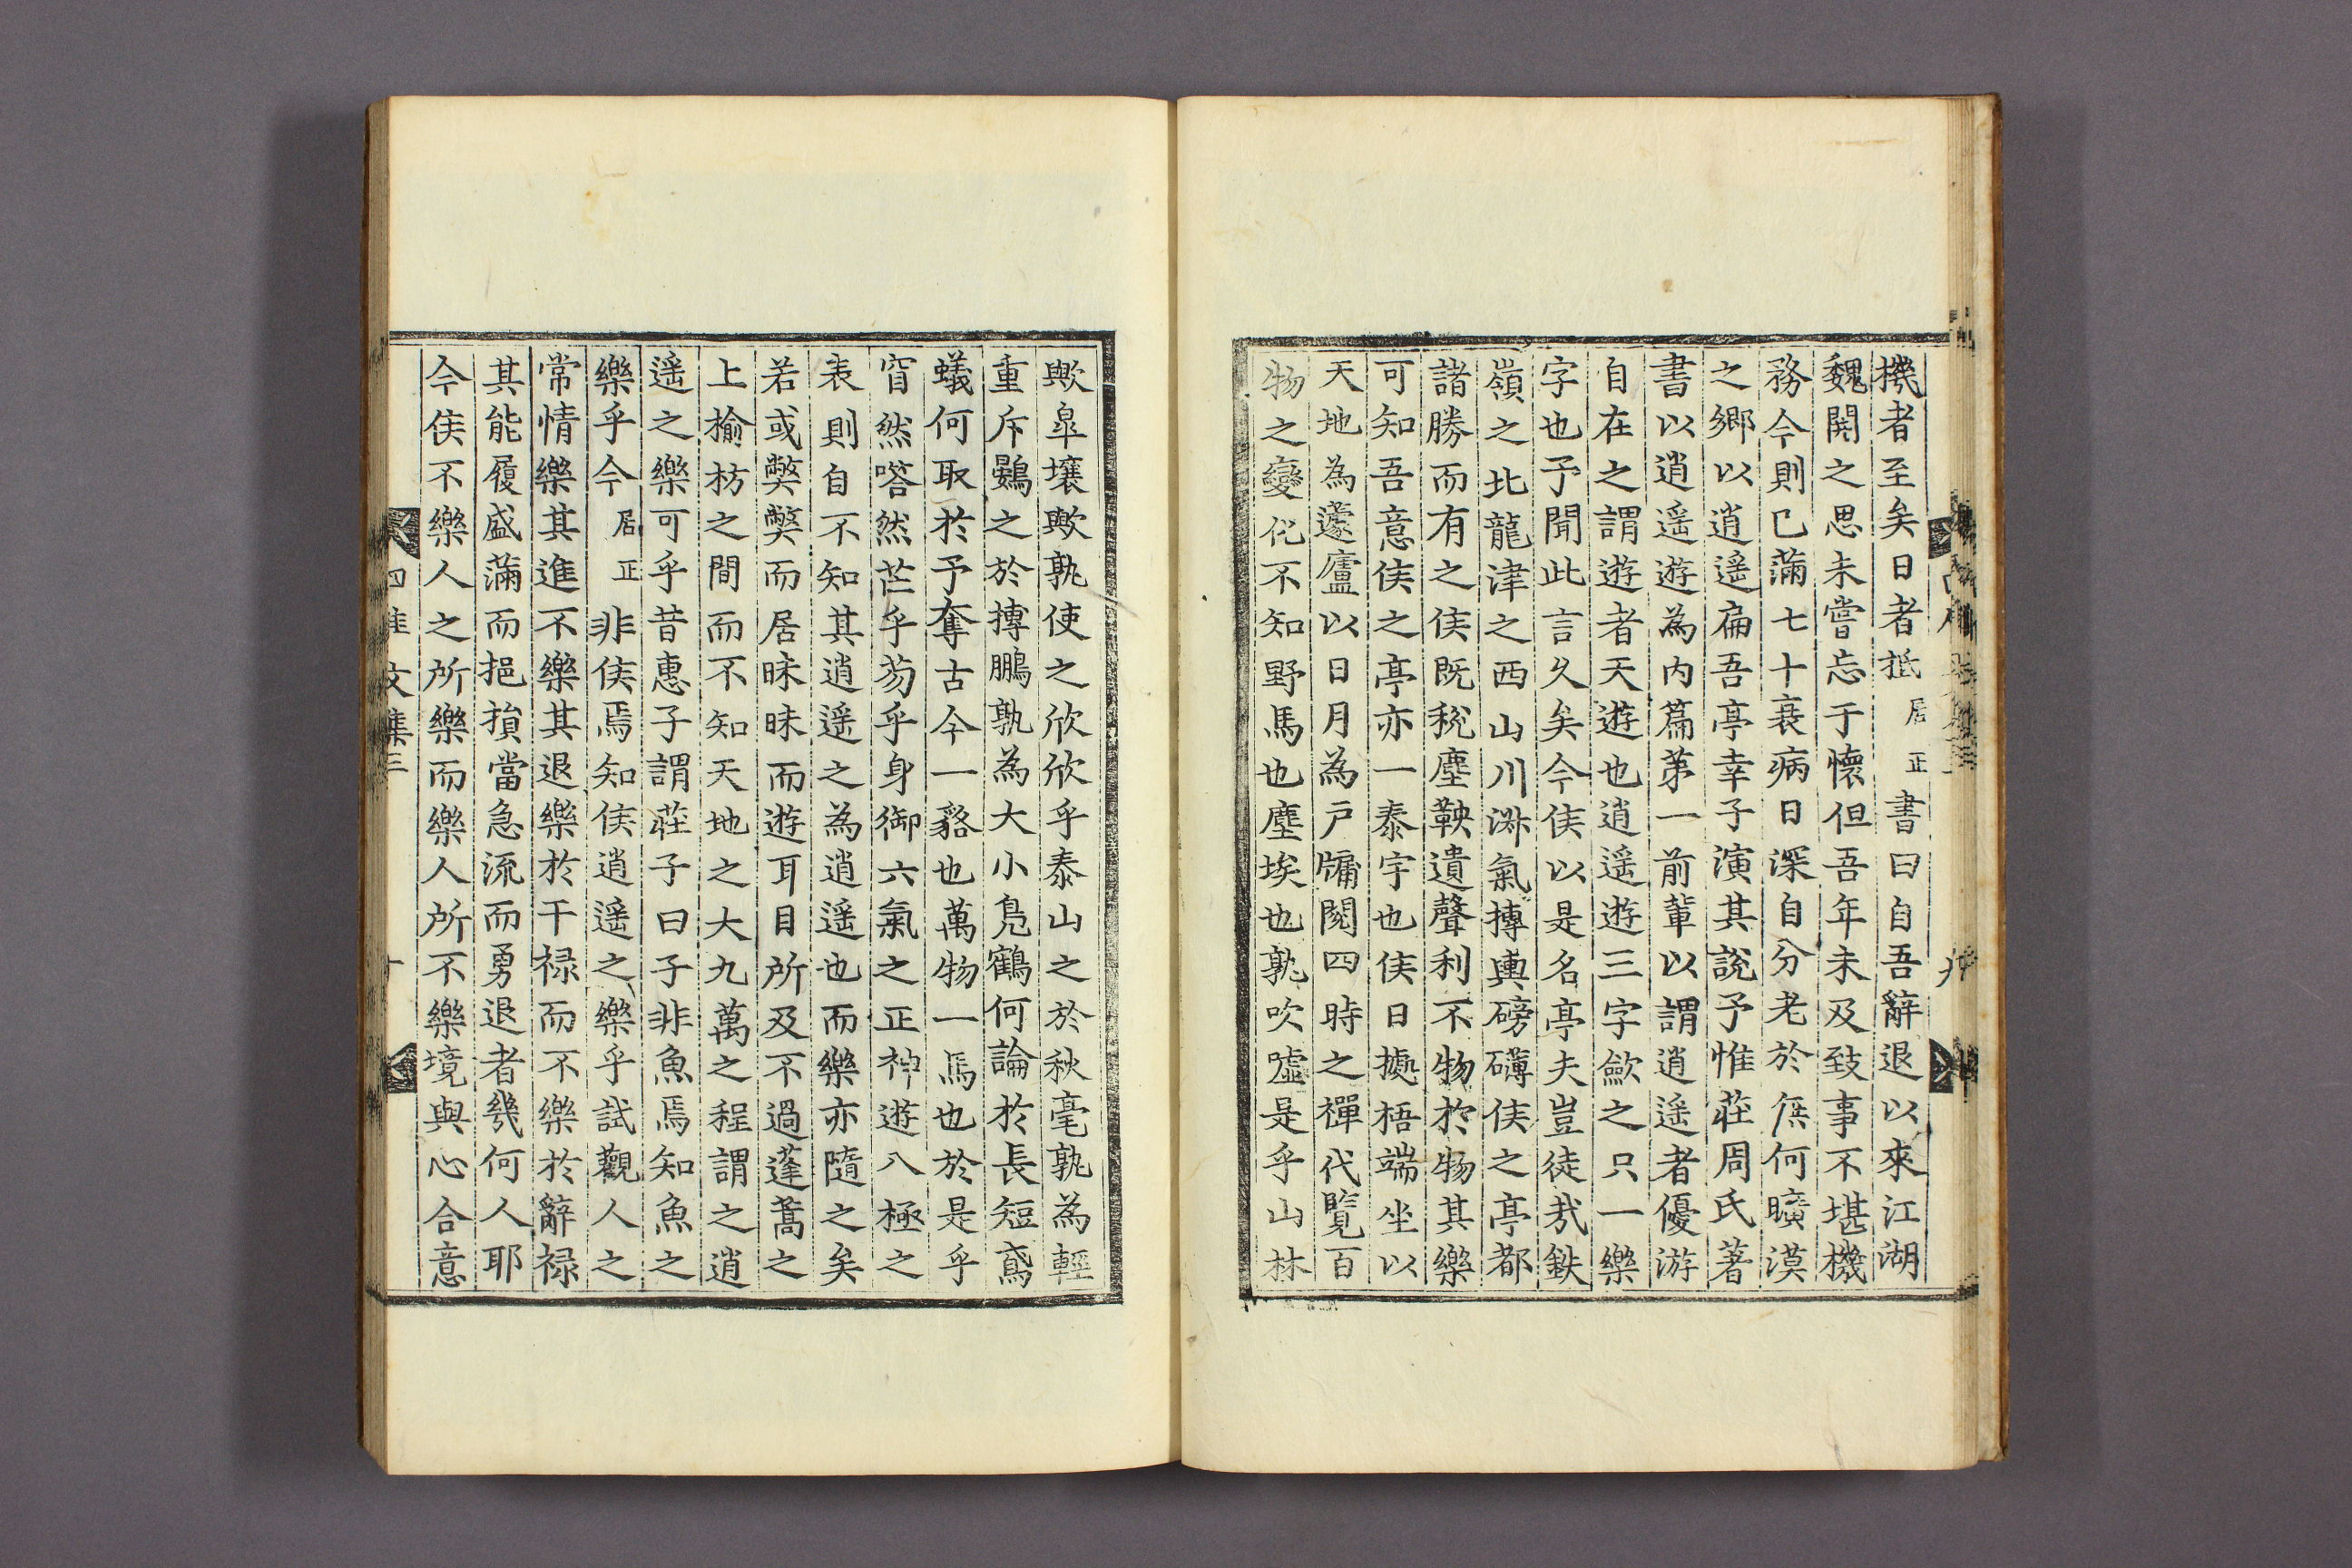 機者至矣日者抵居正書曰自吾辭退以來江湖
魏闕之思未嘗忘于懷但吾年未及致事不堪機
務今則已滿七十衰病日深自分老於無何曠漠
之鄉以逍遙扁吾亭幸子演其說予惟莊周氏著
書以逍遙遊為內篇第一前輩以謂逍遙者優游
自在之謂遊者天遊也逍遙遊三字歛之只一樂
字也予聞此言久矣今侯以是名亭夫豈徒哉鈇
嶺之北龍津之西山川渺氣搏輿磅礴侯之亭都
諸勝而有之侯既稅塵鞅遺聲利不物於物其樂
可知吾意侯之亭亦一泰宇也侯日據梧端坐以
天地為蘧廬以日月為戶牖閱四時之禪代覽百
物之變化不知野馬也塵埃也孰吹噓是乎山林
歟皐壤歟孰使之欣欣乎泰山之於秋毫孰為輕
重斥鷃之於摶鵬孰為大小鳧鶴何論於長短鳶
蟻何取於予奪古今一貉也萬物一馬也於是乎
窅然嗒然芒乎芴乎身御六氣之正神遊八極之
表則自不知其逍遙之為逍遙也而樂亦隨之矣
若或弊弊而居昧昧而遊耳目所及不過蓬蒿之
上榆枋之間而不知天地之大九萬之程謂之逍
遙之樂可乎昔惠子謂莊子曰子非魚焉知魚之
樂乎今居正非侯焉知侯逍遙之樂乎試觀人之
常情樂其進不樂其退樂於干祿而不樂於辭祿
其能履盛滿而挹損當急流而勇退者幾何人耶
今侯不樂人之所樂而樂人所不樂境與心合意
四佳文集三
十